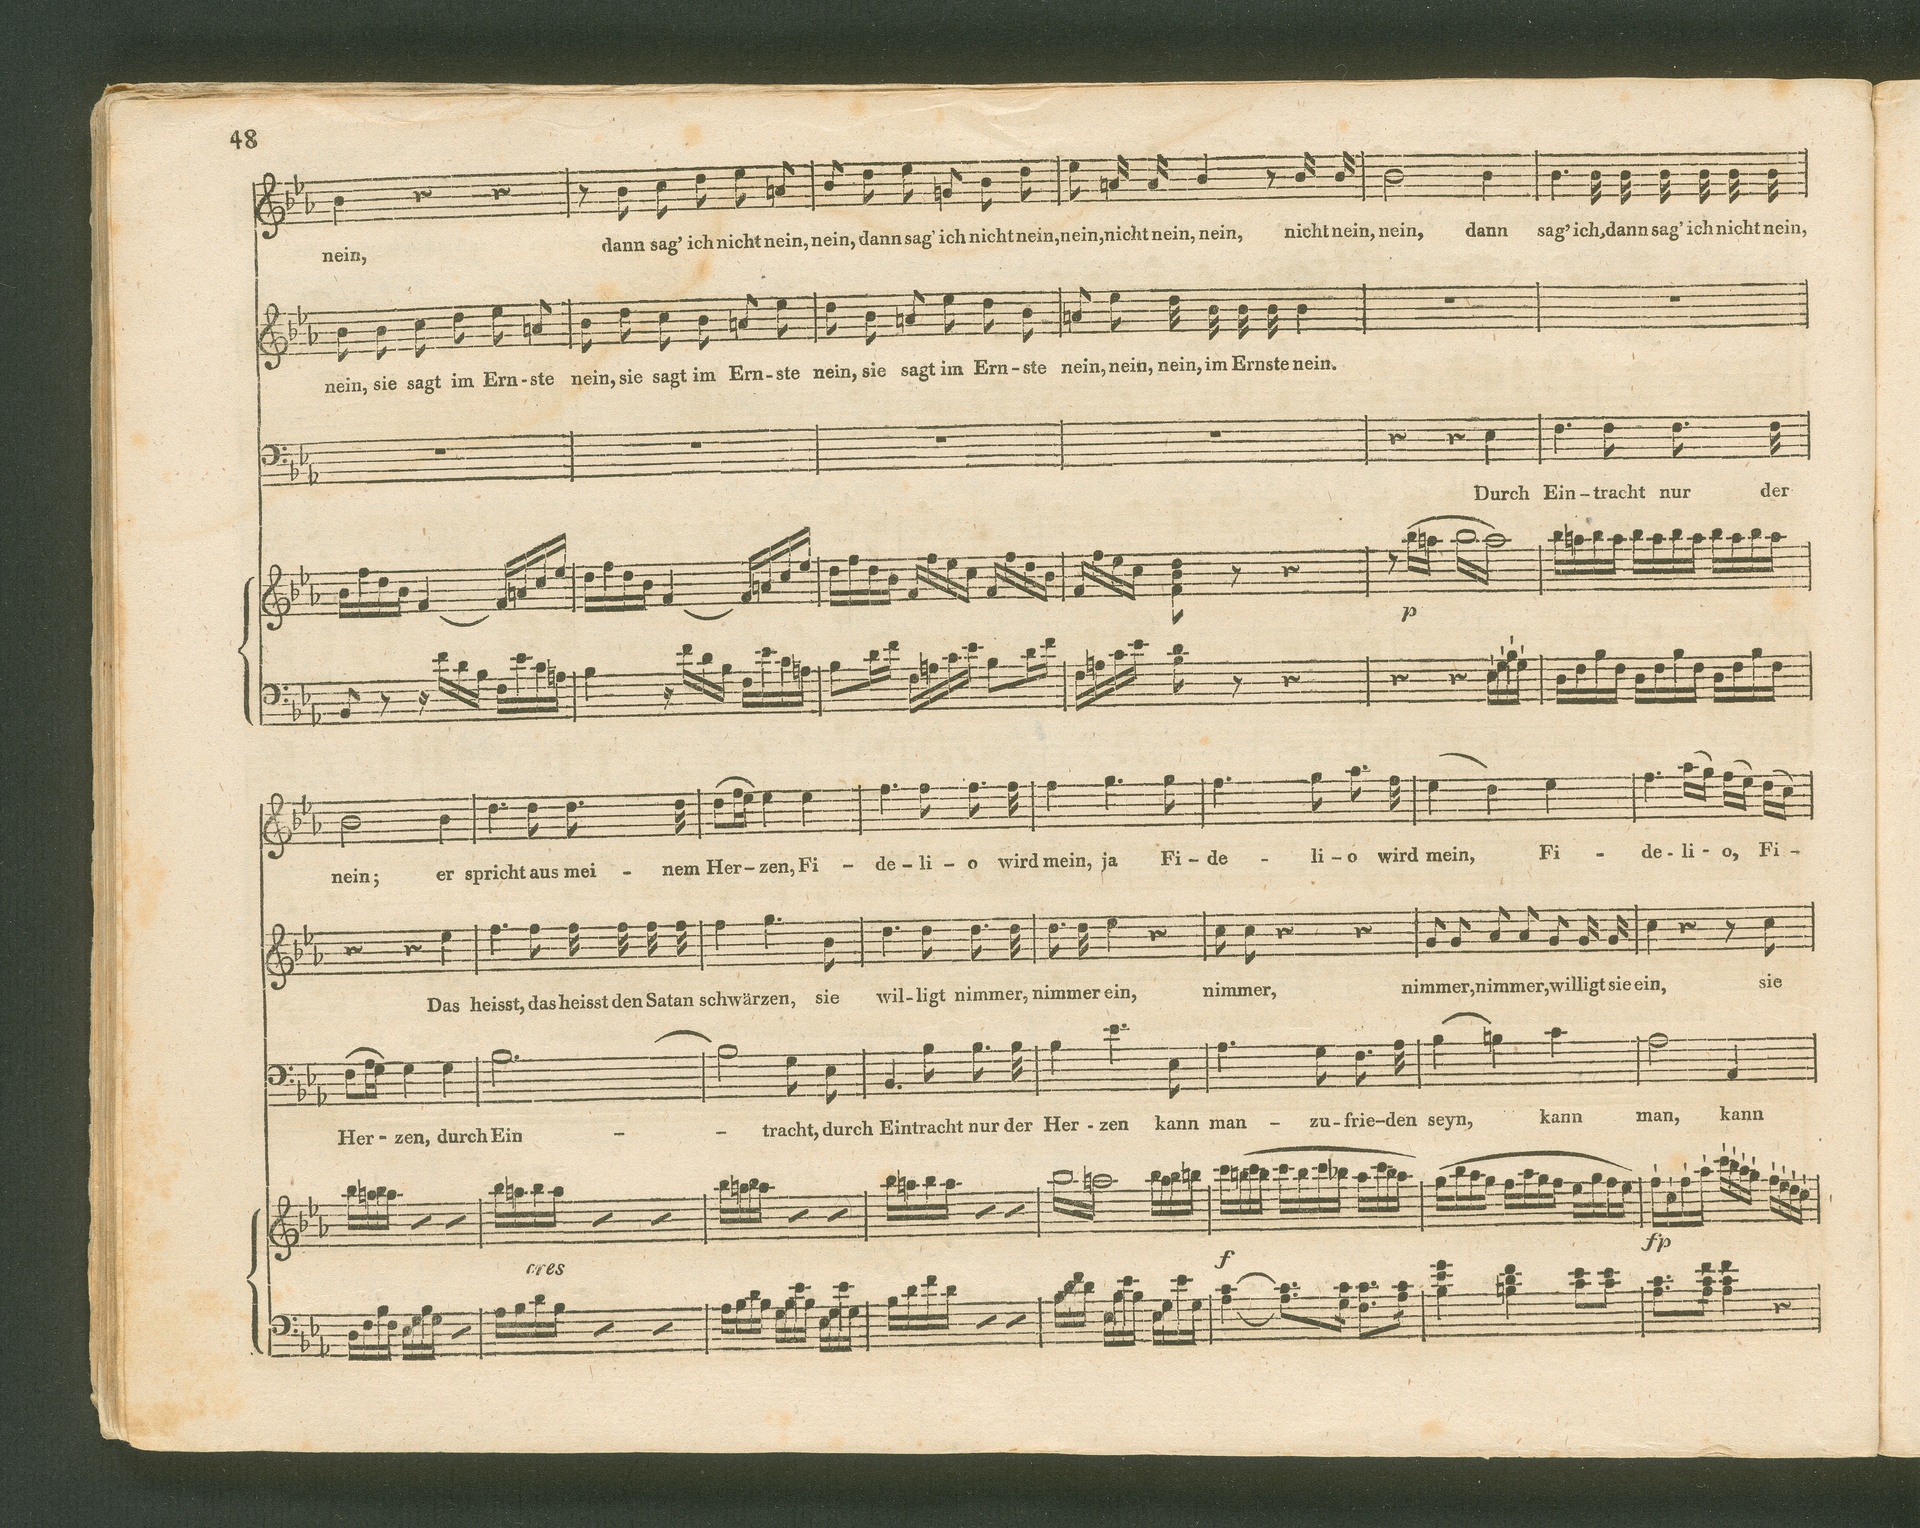 48
nein, dann sag' ich nicht nein, nein, dann sag' ich nicht nein, nein, nicht nein, nein, nicht nein, nein, dann sag' ich, dann sag' ich nicht nein,
nein, sie sagt im Ern-ste nein, sie sagt im Ern-ste nein, sie sagt im Ern-ste nein, nein, nein, im Ernste nein.
Durch Ein-tracht nur der
p
nein; er spricht aus mei - nem Her-zen, Fi - de-li-o wird mein, ja Fi-de - li-o wird mein, Fi - de-li-o, Fi-
Das heisst, das heisst den Satan schwärzen, sie wil-ligt nimmer, nimmer ein, nimmer, nimmer, nimmer, willigt sie ein, sie
Her- zen, durch Ein - - tracht, durch Eintracht nur der Her-zen kann man - zu-frie-den seyn, kann man, kann
cres f fp